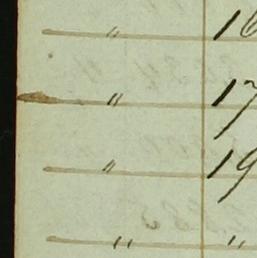 " 16
" 17
" 19
" "